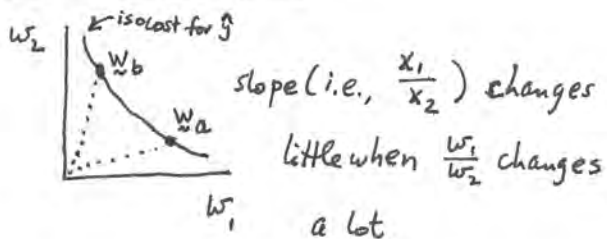 isocost for ŷ
w₂
w̰b
slope (i.e., x₁/x₂) changes
w̰a
little when w₁/w₂ changes
w₁
a lot